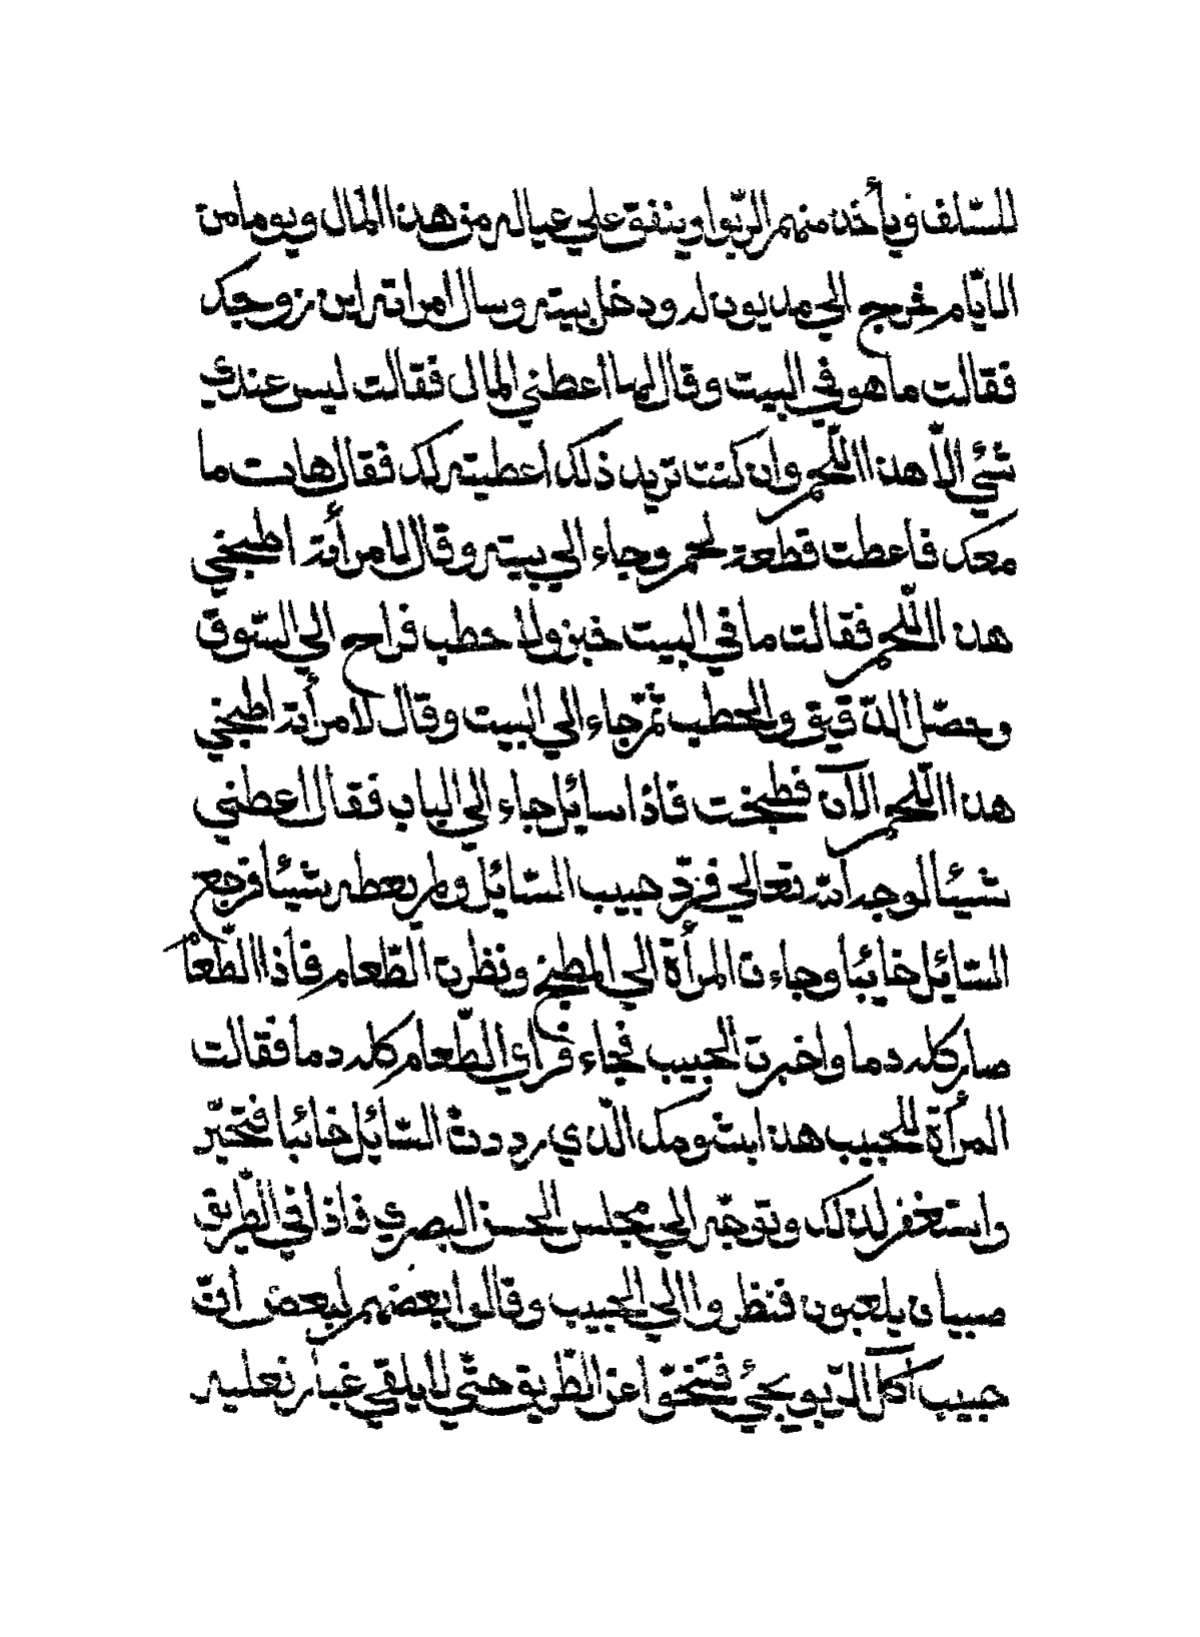 للسّلف فيأخذ منهم الرّبوا وينفق علي عياله من هذا المال ويوما من
الايّام خرج الي مديون له ودخل بيته وسال امراته اين زوجك
فقالت ما هو في البيت وقال لها اعطني المال فقالت ليس عندي
شئي الّا هذا اللّحم وان كنت تريد ذلك اعطيته لك فقال هات ما
معك فاعطت قطعة لحم وجاء الي بيته وقال لامرأته اطبخي
هذا اللّحم فقالت ما في البيت خبز ولا حطب فراح الي السّوق
وحصّل الدّقيق والحطب ثمّ جاء الي البيت وقال لامرأته اطبخي
هذا اللّحم الآن فطبخت فاذا سائل جاء الي الباب فقال اعطني
شيئا لوجه اللّه تعالي فردّ حبيب السّائل ولم يعطه شيئا فرجع
السّائل خائبا وجاءت المرأة الي المطبخ ونظرت الطّعام فاذا الطّعام
صار كله دما واخبرت الحبيب فجاء فرأي الطّعام كله دما فقالت
المرأة للحبيب هذا بشومك الّذي رددت السّائل خائبا فتحيّر
واستغفر لذلك وتوجّه الي مجلس الحسن البصري فاذا في الطّريق
صبيان يلعبون فنظروا الي الحبيب وقالوا بعضهم لبعض انّ
حبيب آكل الرّبو يجئ فتنحّوا عن الطّريق حتّي لا يلقي غبار نعليه